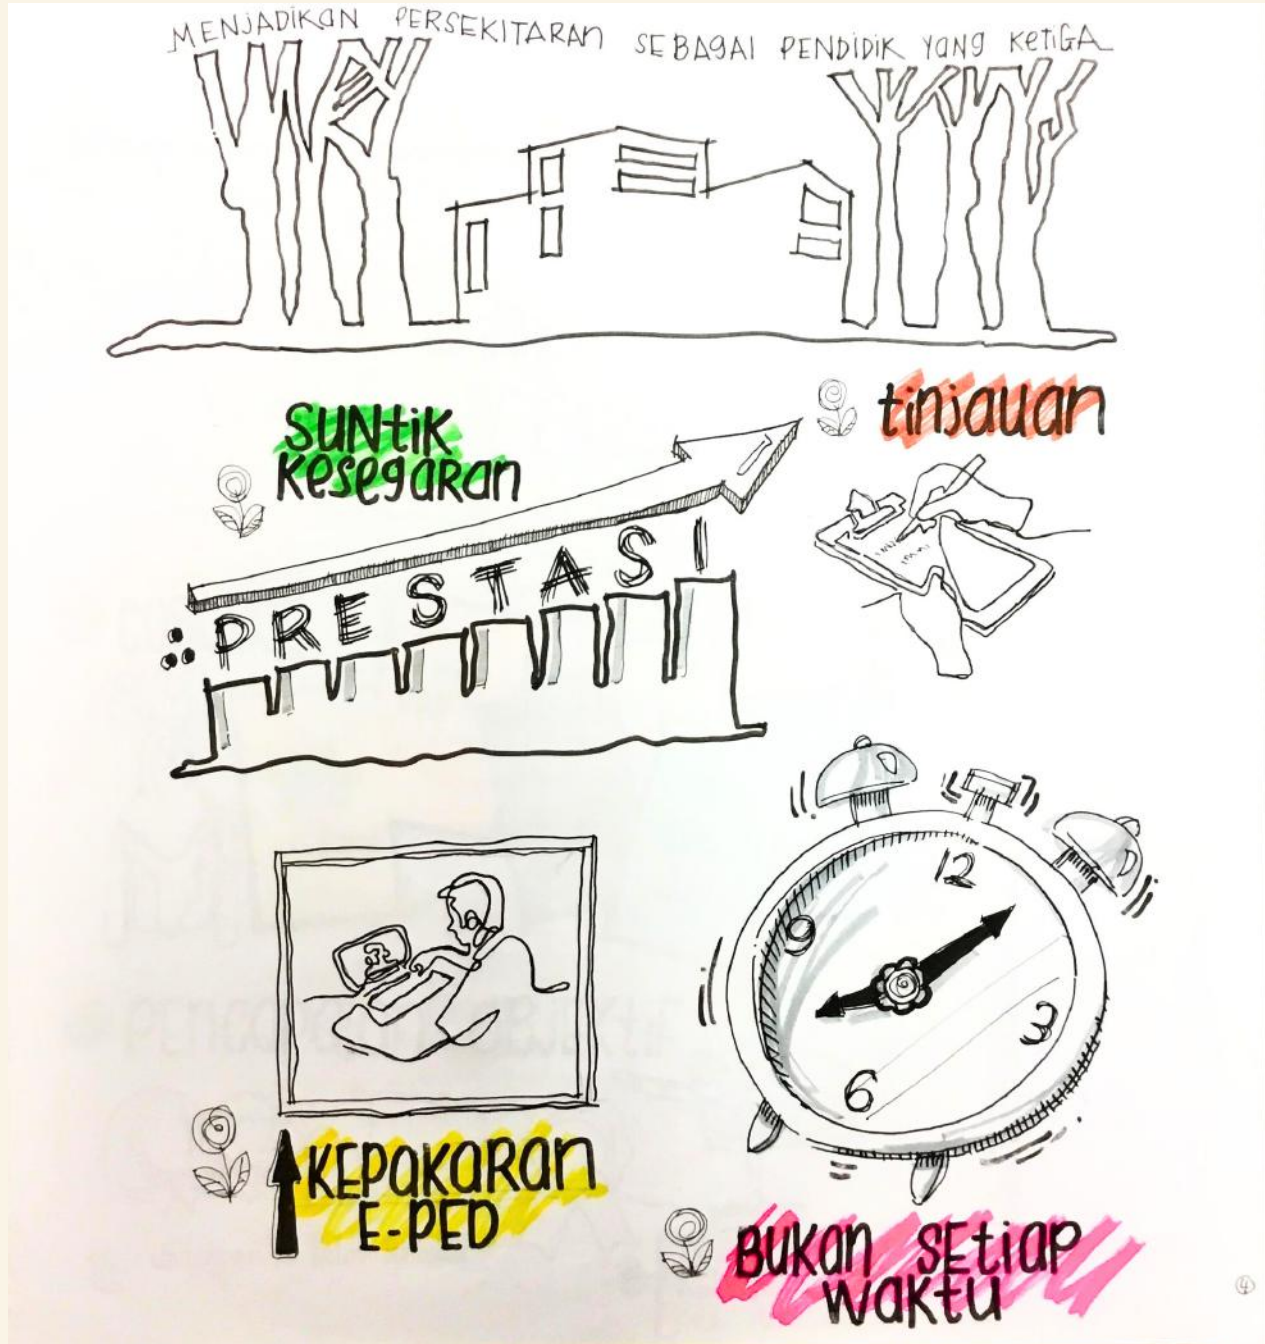 MENJADIKAN PERSEKITARAN SEBAGAI PENDIDIK YANG KETIGA
SUNTIK
KESEGARAN
tinjauan
PRESTASI
12
9
3
6
KEPAKARAN
E-PED
BUKAN SETIAP
WAKTU
4